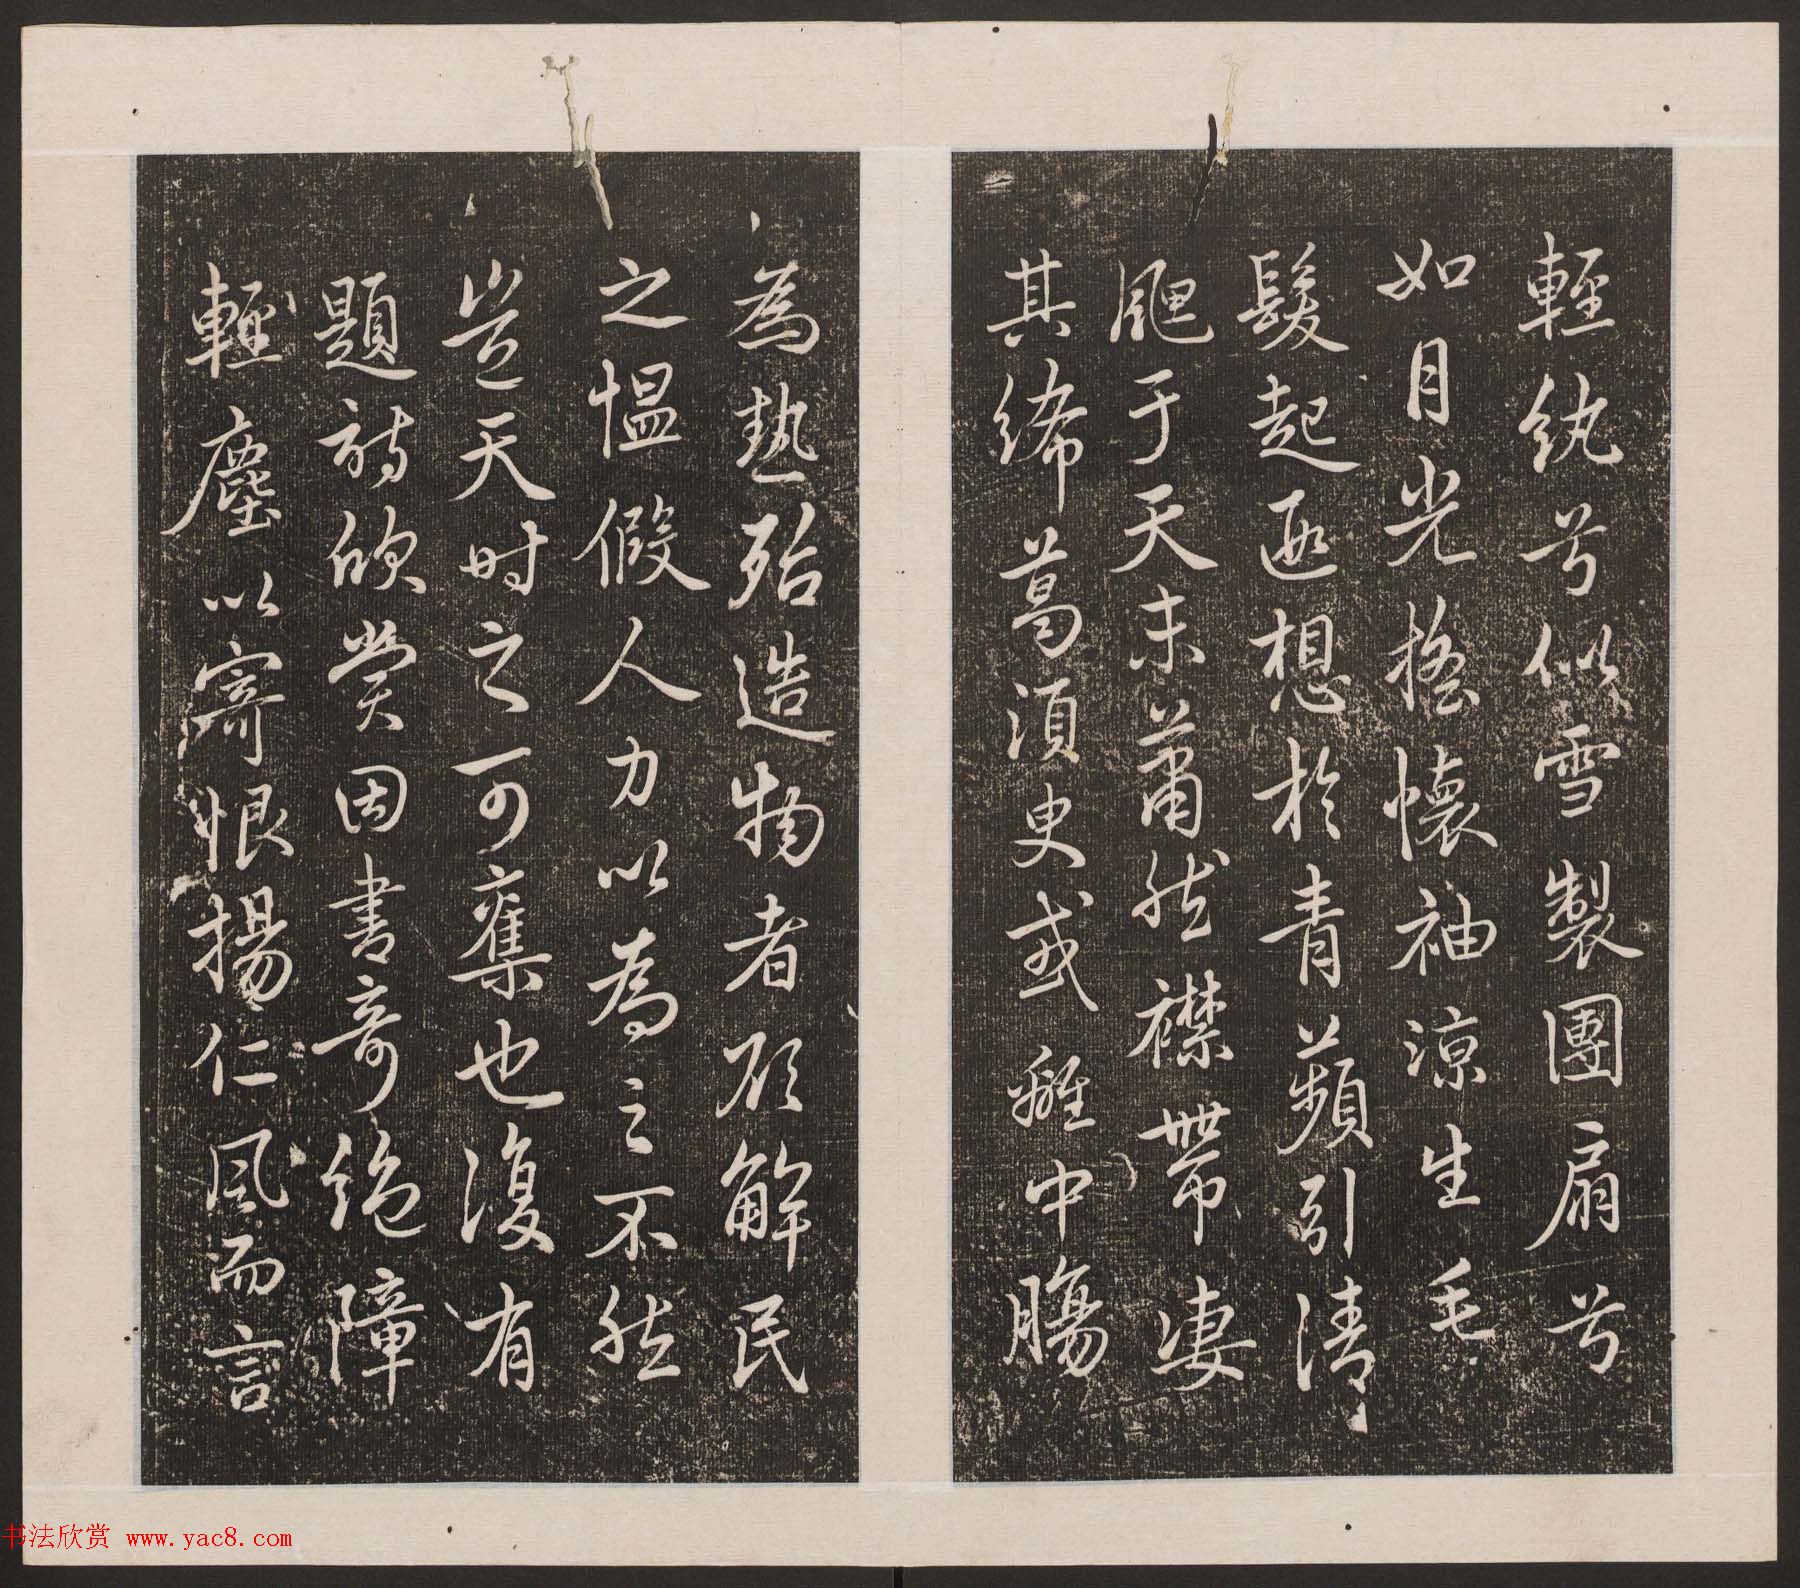 輕紈兮似雪製團扇兮
如月光搖懷袖涼生毛
髮起遐想於青蘋引清
颸于天末蕭然襟帶凄
其絺葛須臾或離中腸
為熱殆造物者解民
之愠假人力以為之不然
豈天時之可奪也復有
題詩欣賞因書奇絶障
輕塵以寄恨揚仁風而言
书法欣赏 www.yac8.com